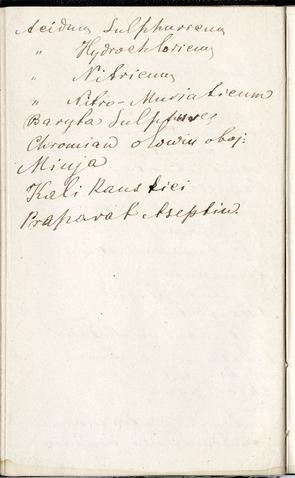 Acidum Sulphurreum
" Hydrochloricum
" Nitricum
" Nitro-Muriaticum
Baryta Sulphures
Chromian ołowiu oboj:
Minja
Kali Kaustici
Praparat Aseptin.